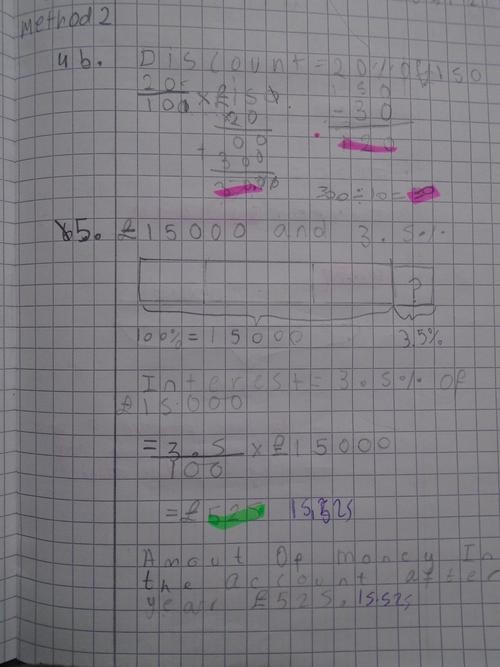 method 2
4b. Discount = 20% of 150
20
100 × £150
×20
00
+ 300
3000
150
- 30
120
300 ÷ 10 = 30
5. £15000 and 3.5%
?
100% = 15000
3.5%
Interest = 3.5% of
£15000
= 3.5
100 × £15000
= £525 15,525
Amout Of money In
the account after
year £525. 15.525